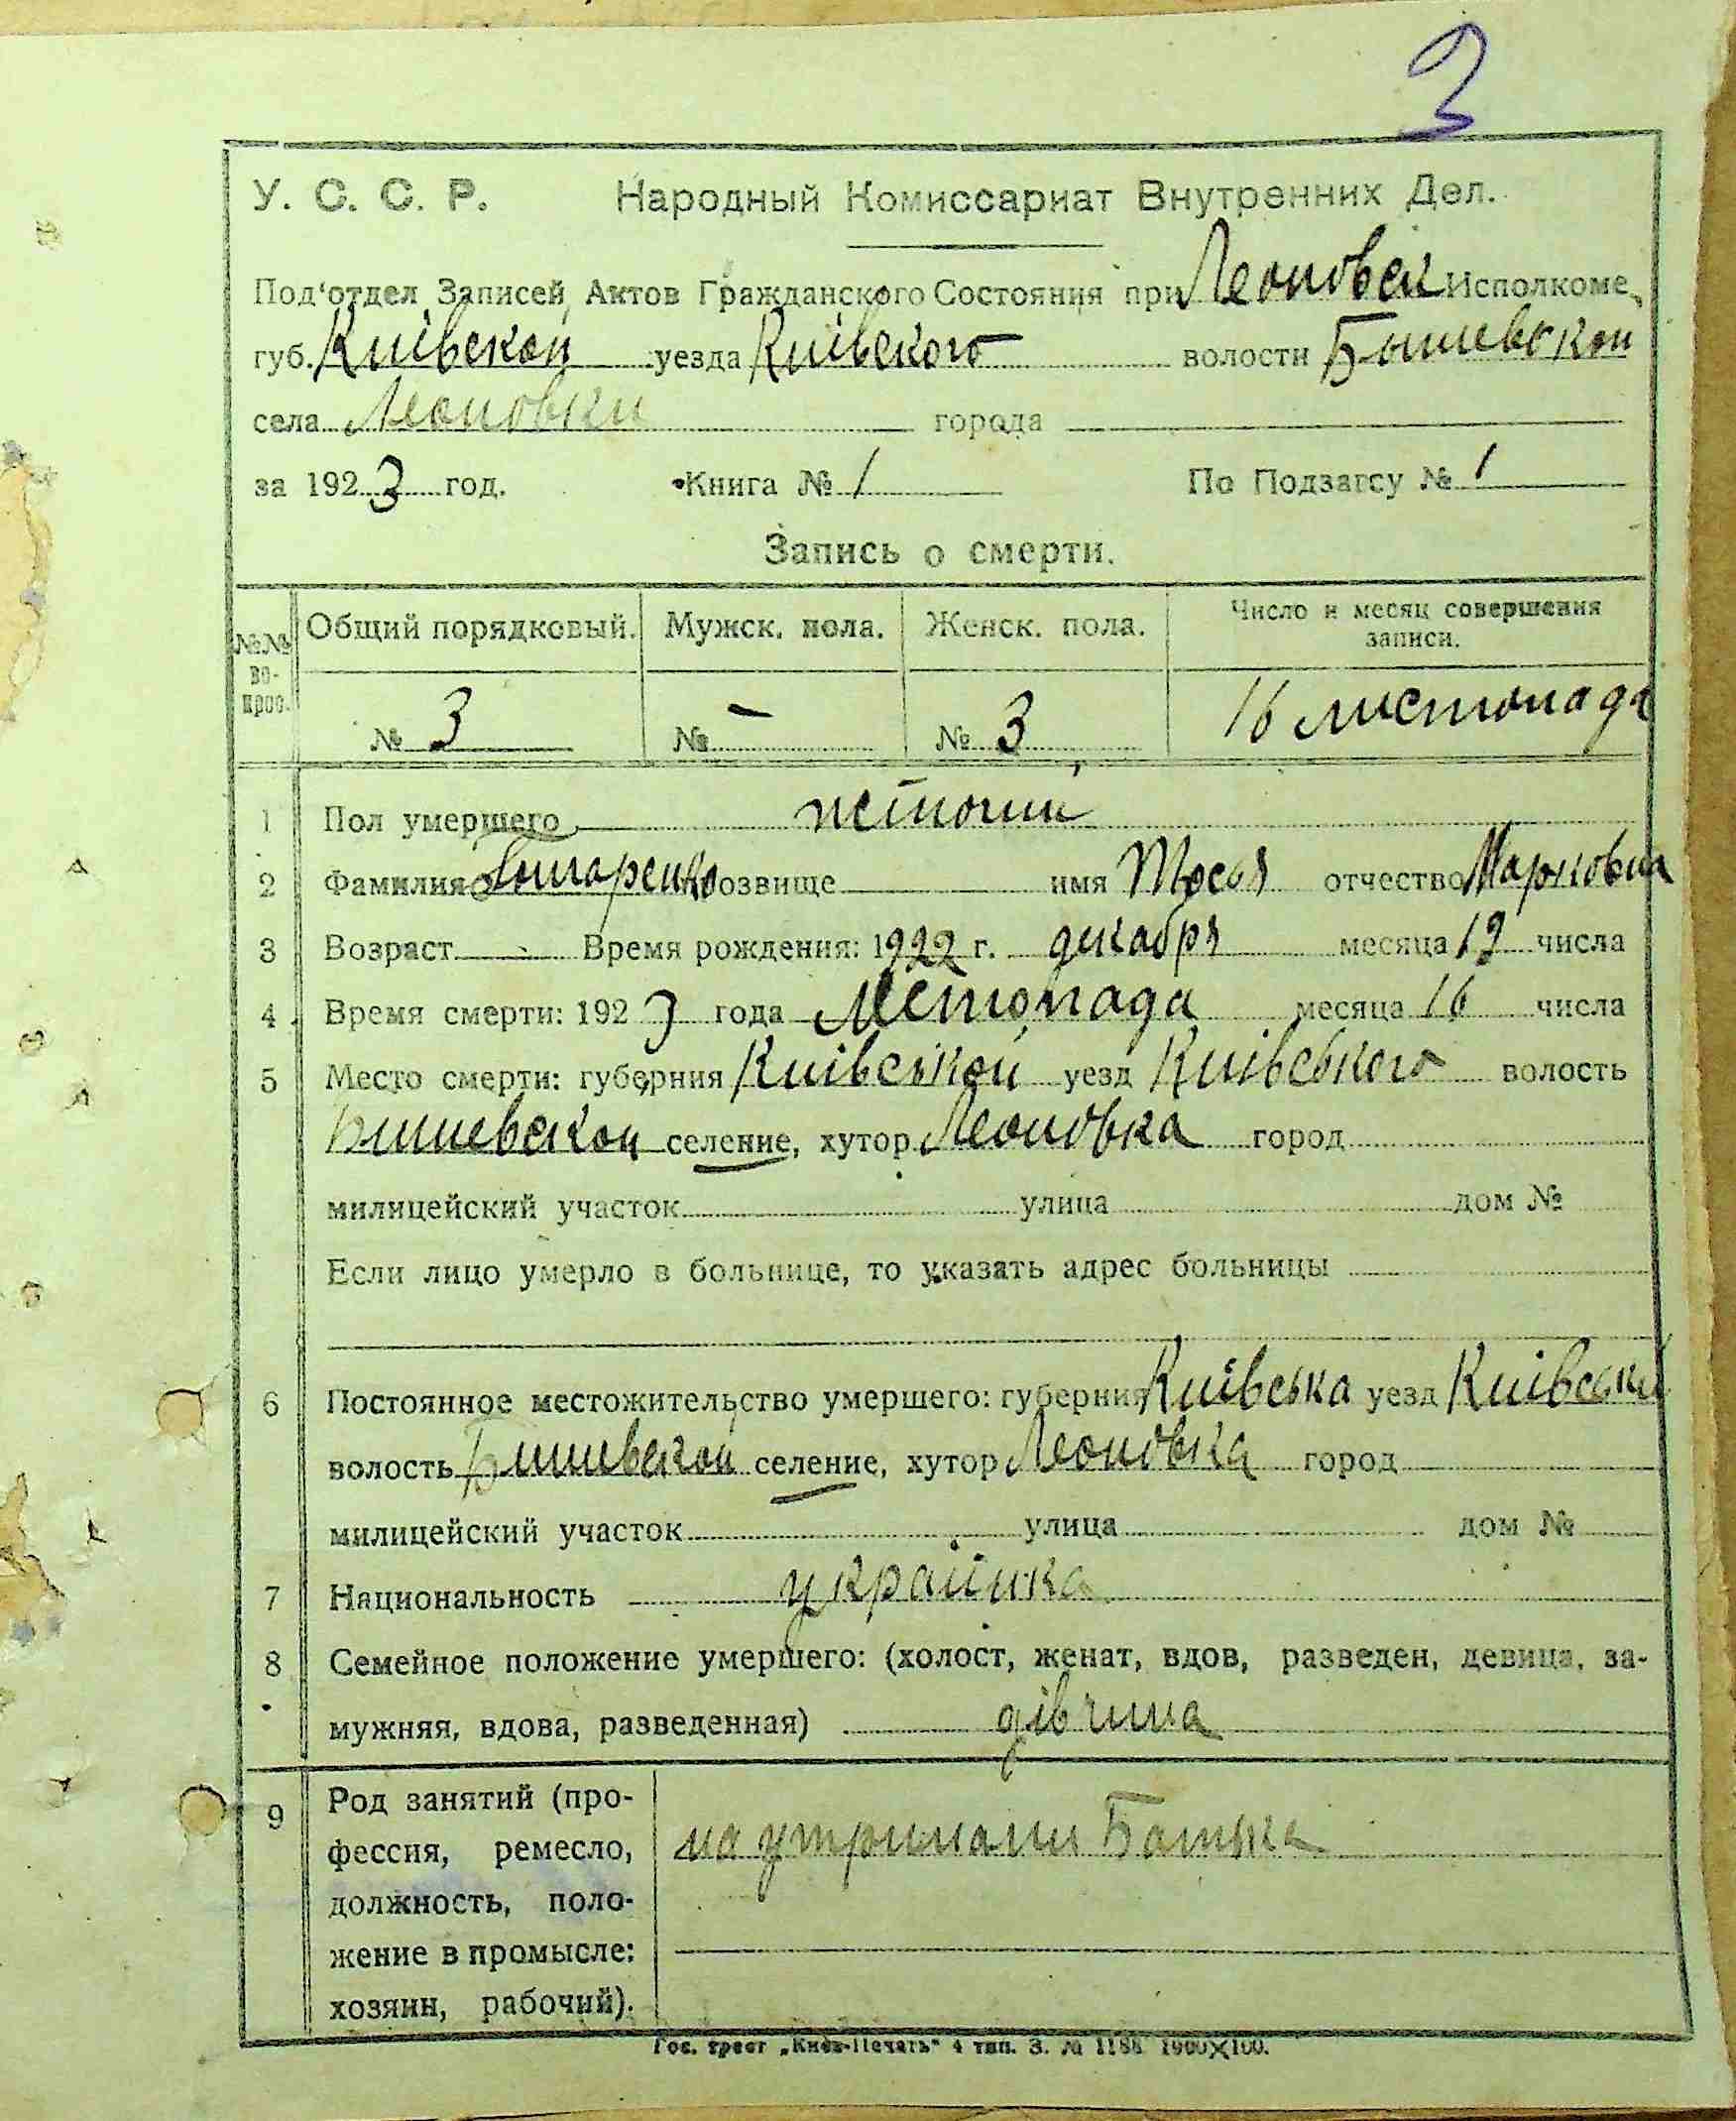 3
У. С. С. Р. Народный Комиссариат Внутренних Дел.
Под'отдел Записей Актов Гражданского Состояния при Леоновск Исполкоме
губ. Київской уезда Київского волости Бышевской
села Леоновки города
за 1923 год. Книга № 1 По Подзагсу № 1
Запись о смерти.
№№ вопрос. Общий порядковый. Мужск. пола. Женск. пола. Число и месяц совершения записи.
№ 3 № - № 3 16 листопада
1 Пол умершего жіночий
2 Фамилия прозвище имя Тося отчество Марковна
3 Возраст Время рождения: 1922 г. декабря месяца 19 числа
4 Время смерти: 1923 года Листопада месяца 16 числа
5 Место смерти: губерния Київської уезд Київського волость
Бишевской селение, хутор Леоновка город
милицейский участок улица дом №
Если лицо умерло в больнице, то указать адрес больницы
6 Постоянное местожительство умершего: губерния Київська уезд Київський
волость Бишевской селение, хутор Леоновка город
милицейский участок улица дом №
7 Национальность українка
8 Семейное положение умершего: (холост, женат, вдов, разведен, девица, за-
мужняя, вдова, разведенная) дівчина
9 Род занятий (про-
фессия, ремесло, на утримани Батька
должность, поло-
жение в промысле:
хозяин, рабочий).
Гос. трест „Киев-Печать" 4 тип. З. № 1188 1900×100.